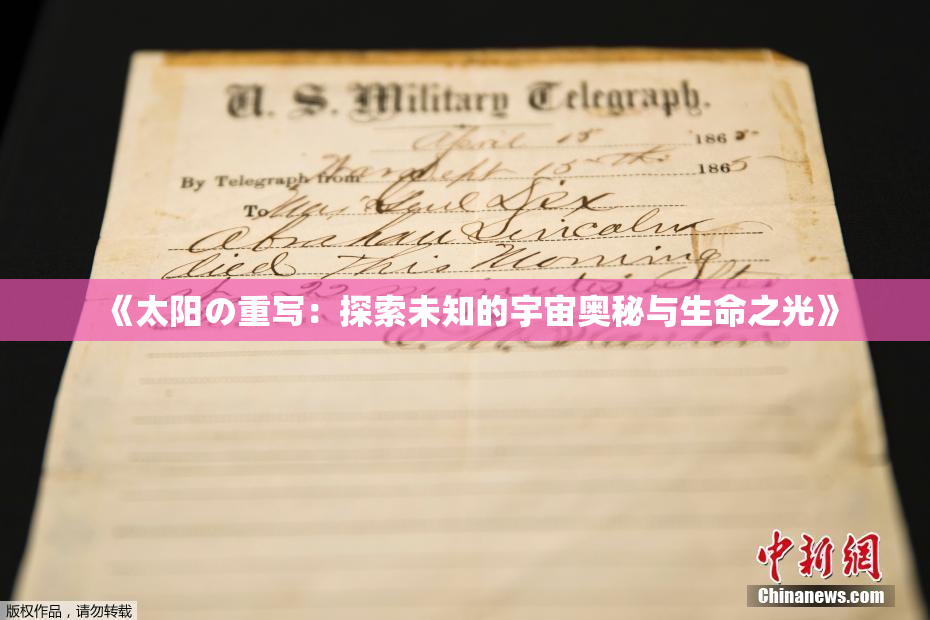 U. S. Military Telegraph.
April 15 1865
By Telegraph from War Dept 15th 1865
To Maj Genl Dix
Abraham Lincoln
died This Morning
22 minutes after
《太阳の重写：探索未知的宇宙奥秘与生命之光》
E. M. Stanton
中新网
Chinanews.com
版权作品，请勿转载